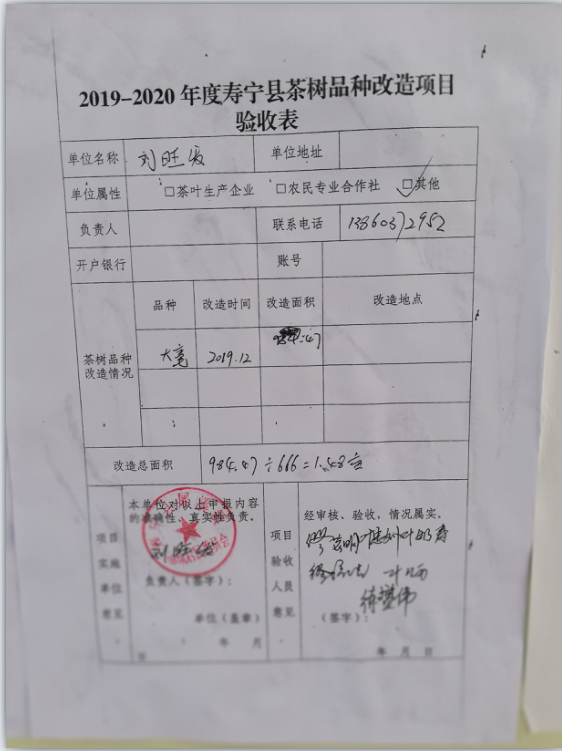 2019-2020 年度寿宁县茶树品种改造项目
验收表
单位名称 刘旺发 单位地址
单位属性 □茶叶生产企业 □农民专业合作社 □其他
负责人 联系电话 13860372952
开户银行 账号
品种 改造时间 改造面积 改造地点
茶树品种
改造情况
大毫 2019.12 984.47
改造总面积 984.47÷666=1.48亩
项目
实施
单位
意见
本单位对以上申报内容
的准确性、真实性负责。
刘旺发
负责人(签字):
单位(盖章)
年 月
日
项目
验收
人员
意见
经审核、验收,情况属实。
(签字):
年 月 日